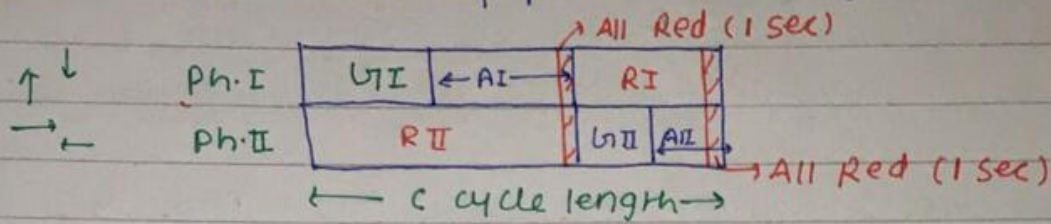 All Red (1 sec)
↑ ↓ Ph.I GI ←AI→ RI
→ ← Ph.II R II GII AII
All Red (1 sec)
← C cycle length →